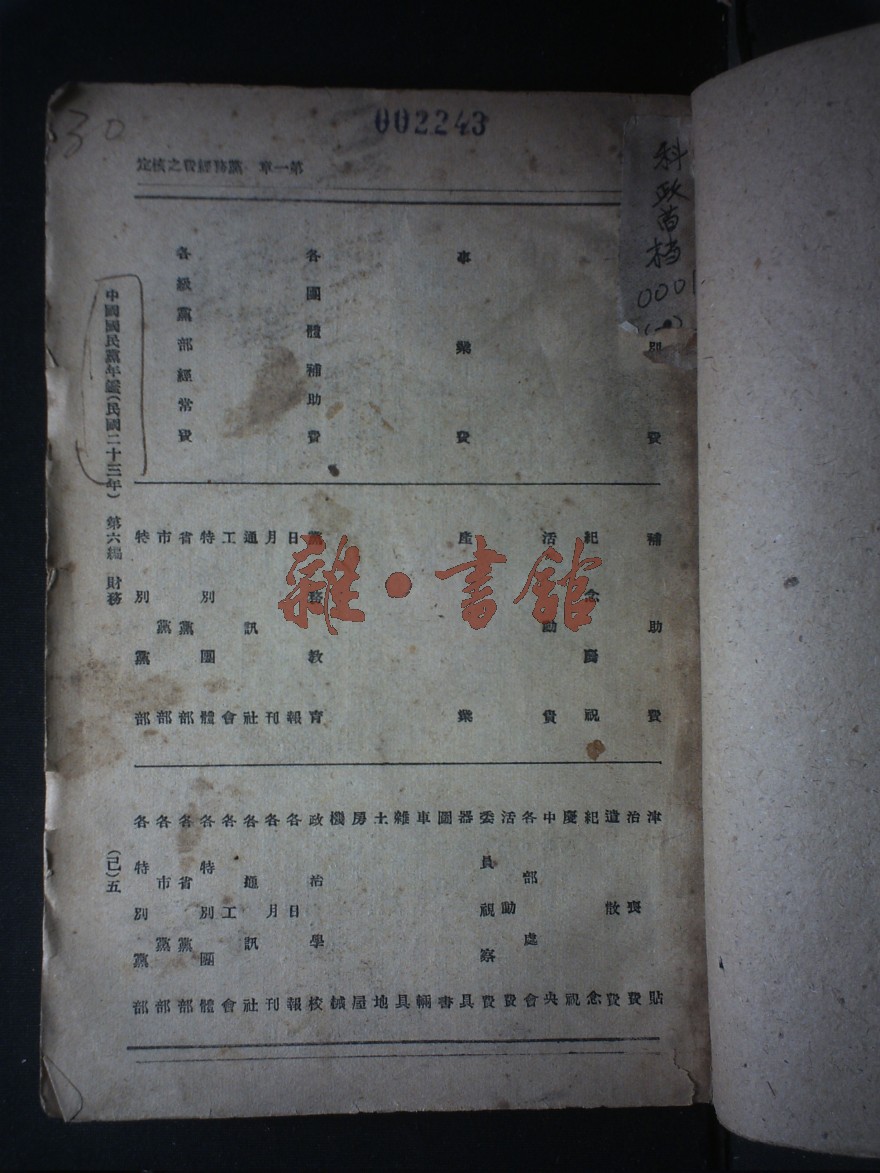 30
002243
第一章 黨務經費之核定
科政
档
0001
(一)
別費
事業費
各團體補助費
各級黨部經常費
補助費
紀念慶祝
活動費
產業
黨務教育
日報
月刊
通訊社
工會
特別團體
省黨部
市黨部
特別黨部
津貼
治喪費
遣散費
紀念
慶祝
中央
各部處會
活動費
委員視察費
器具
圖書
車輛
雜具
土地
房屋
機械
政治學校
各日報
各月刊
各通訊社
各工會
各特別團體
各省黨部
各市黨部
各特別黨部
中國國民黨年鑑(民國二十三年) 第六編 財務
(己)五
雜·書館